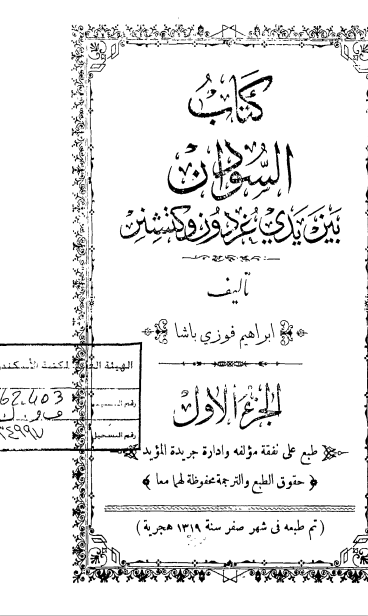 كتاب
السودان
بين يدي غردون وكتشنر
تأليف
ابراهيم فوزي باشا
الجزء الاول
طبع على نفقة مؤلفه وادارة جريدة المؤيد
حقوق الطبع والترجمة محفوظة لهما معا
( تم طبعه فى شهر صفر سنة ١٣١٩ هجرية )
الهيئة العامة لمكتبة الأسكندر
رقم
رقم التسجيل